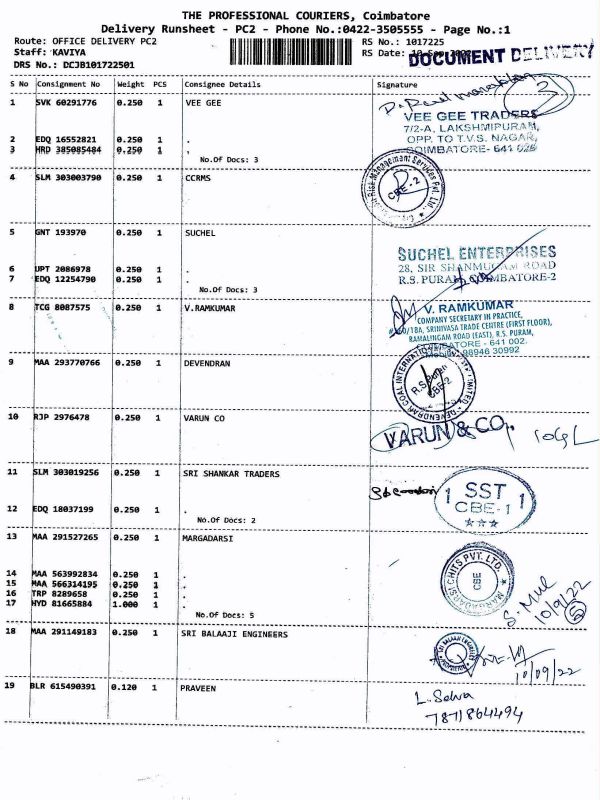 THE PROFESSIONAL COURIERS, Coimbatore
Delivery Runsheet - PC2 - Phone No.:0422-3505555 - Page No.:1
Route: OFFICE DELIVERY PC2
Staff: KAVIYA
DRS No.: DCJB101722501
RS No.: 1017225
RS Date:
DOCUMENT DELIVERY
S No Consignment No Weight PCS Consignee Details Signature
1 SVK 60291776 0.250 1 VEE GEE
3
VEE GEE TRADERS
7/2-A, LAKSHMIPURAM,
OPP. TO T.V.S. NAGAR,
COIMBATORE- 641 025
2 EDQ 16552821 0.250 1 .
3 HRD 385085484 0.250 1 .
No.Of Docs: 3
4 SLM 303003790 0.250 1 CCRMS
CBE-2
5 GNT 193970 0.250 1 SUCHEL
SUCHEL ENTERPRISES
28, SIR SHANMUGAM ROAD
R.S. PURAM, COIMBATORE-2
6 UPT 2086978 0.250 1 .
7 EDQ 12254790 0.250 1 .
No.Of Docs: 3
8 TCG 8087575 0.250 1 V.RAMKUMAR
V. RAMKUMAR
COMPANY SECRETARY IN PRACTICE,
SRINIVASA TRADE CENTRE (FIRST FLOOR),
RAMALINGAM ROAD (EAST), R.S. PURAM,
COIMBATORE - 641 002.
Mobile: 98946 30992
9 MAA 293770766 0.250 1 DEVENDRAN
DEVENDRAN COAL INTERNATIONAL
R.S. Puram
CBE-2
10 RJP 2976478 0.250 1 VARUN CO
VARUN & CO.,
11 SLM 303019256 0.250 1 SRI SHANKAR TRADERS
SST
CBE-1
12 EDQ 18037199 0.250 1 .
No.Of Docs: 2
13 MAA 291527265 0.250 1 MARGADARSI
MARGADARSI CHITS PVT. LTD.
CBE
14 MAA 563992834 0.250 1 .
15 MAA 566314195 0.250 1 .
16 TRP 8289658 0.250 1 .
17 HYD 81665884 1.000 1 .
No.Of Docs: 5
10/9/22
5
18 MAA 291149183 0.250 1 SRI BALAAJI ENGINEERS
10/09/22
19 BLR 615490391 0.120 1 PRAVEEN
L. Selva
7871864494